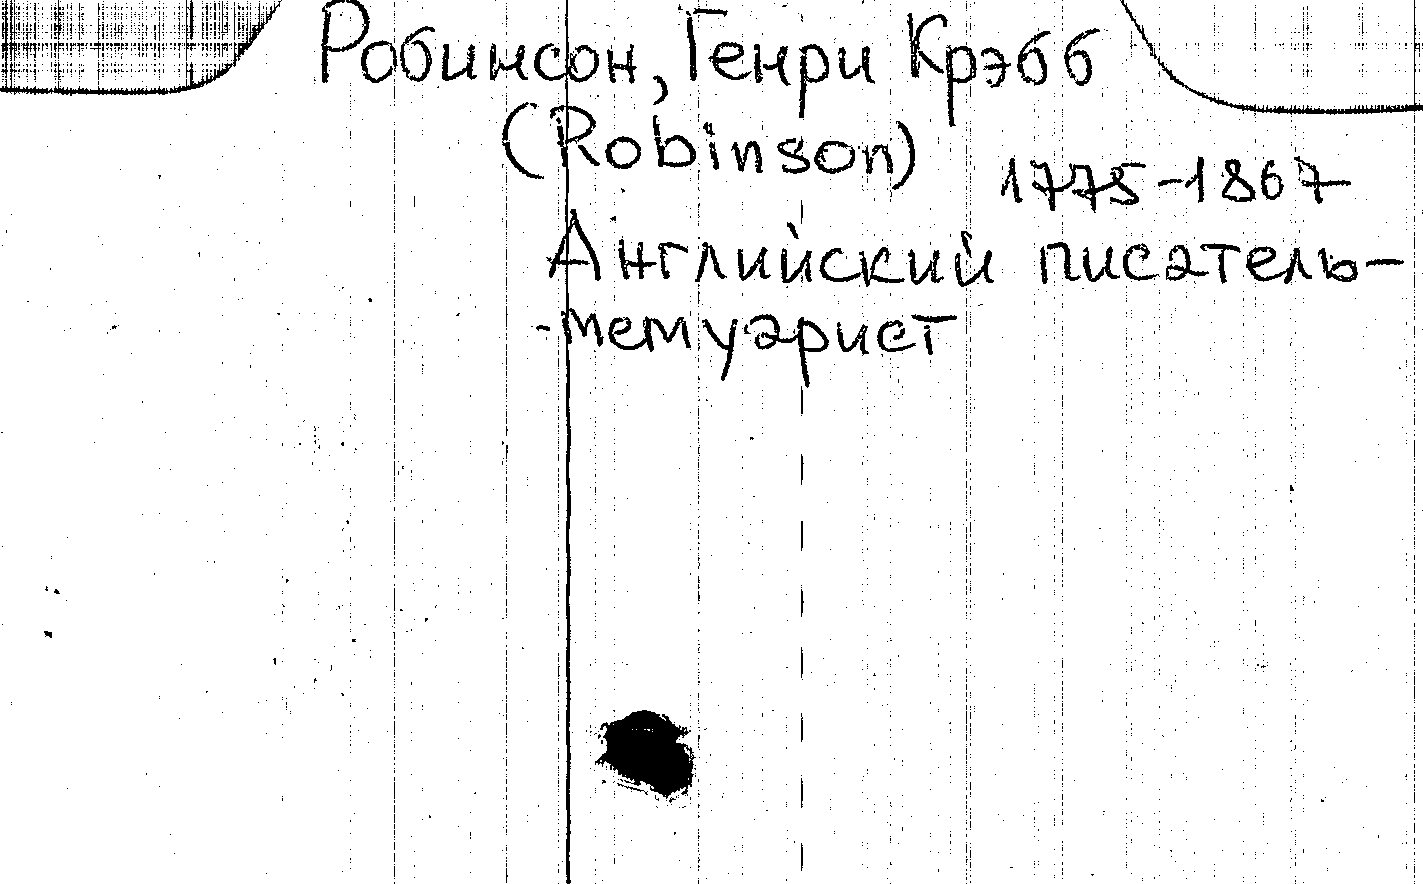 Робинсон, Генри Крэбб
(Robinson) 1775-1867
Английский писатель-
-мемуарист